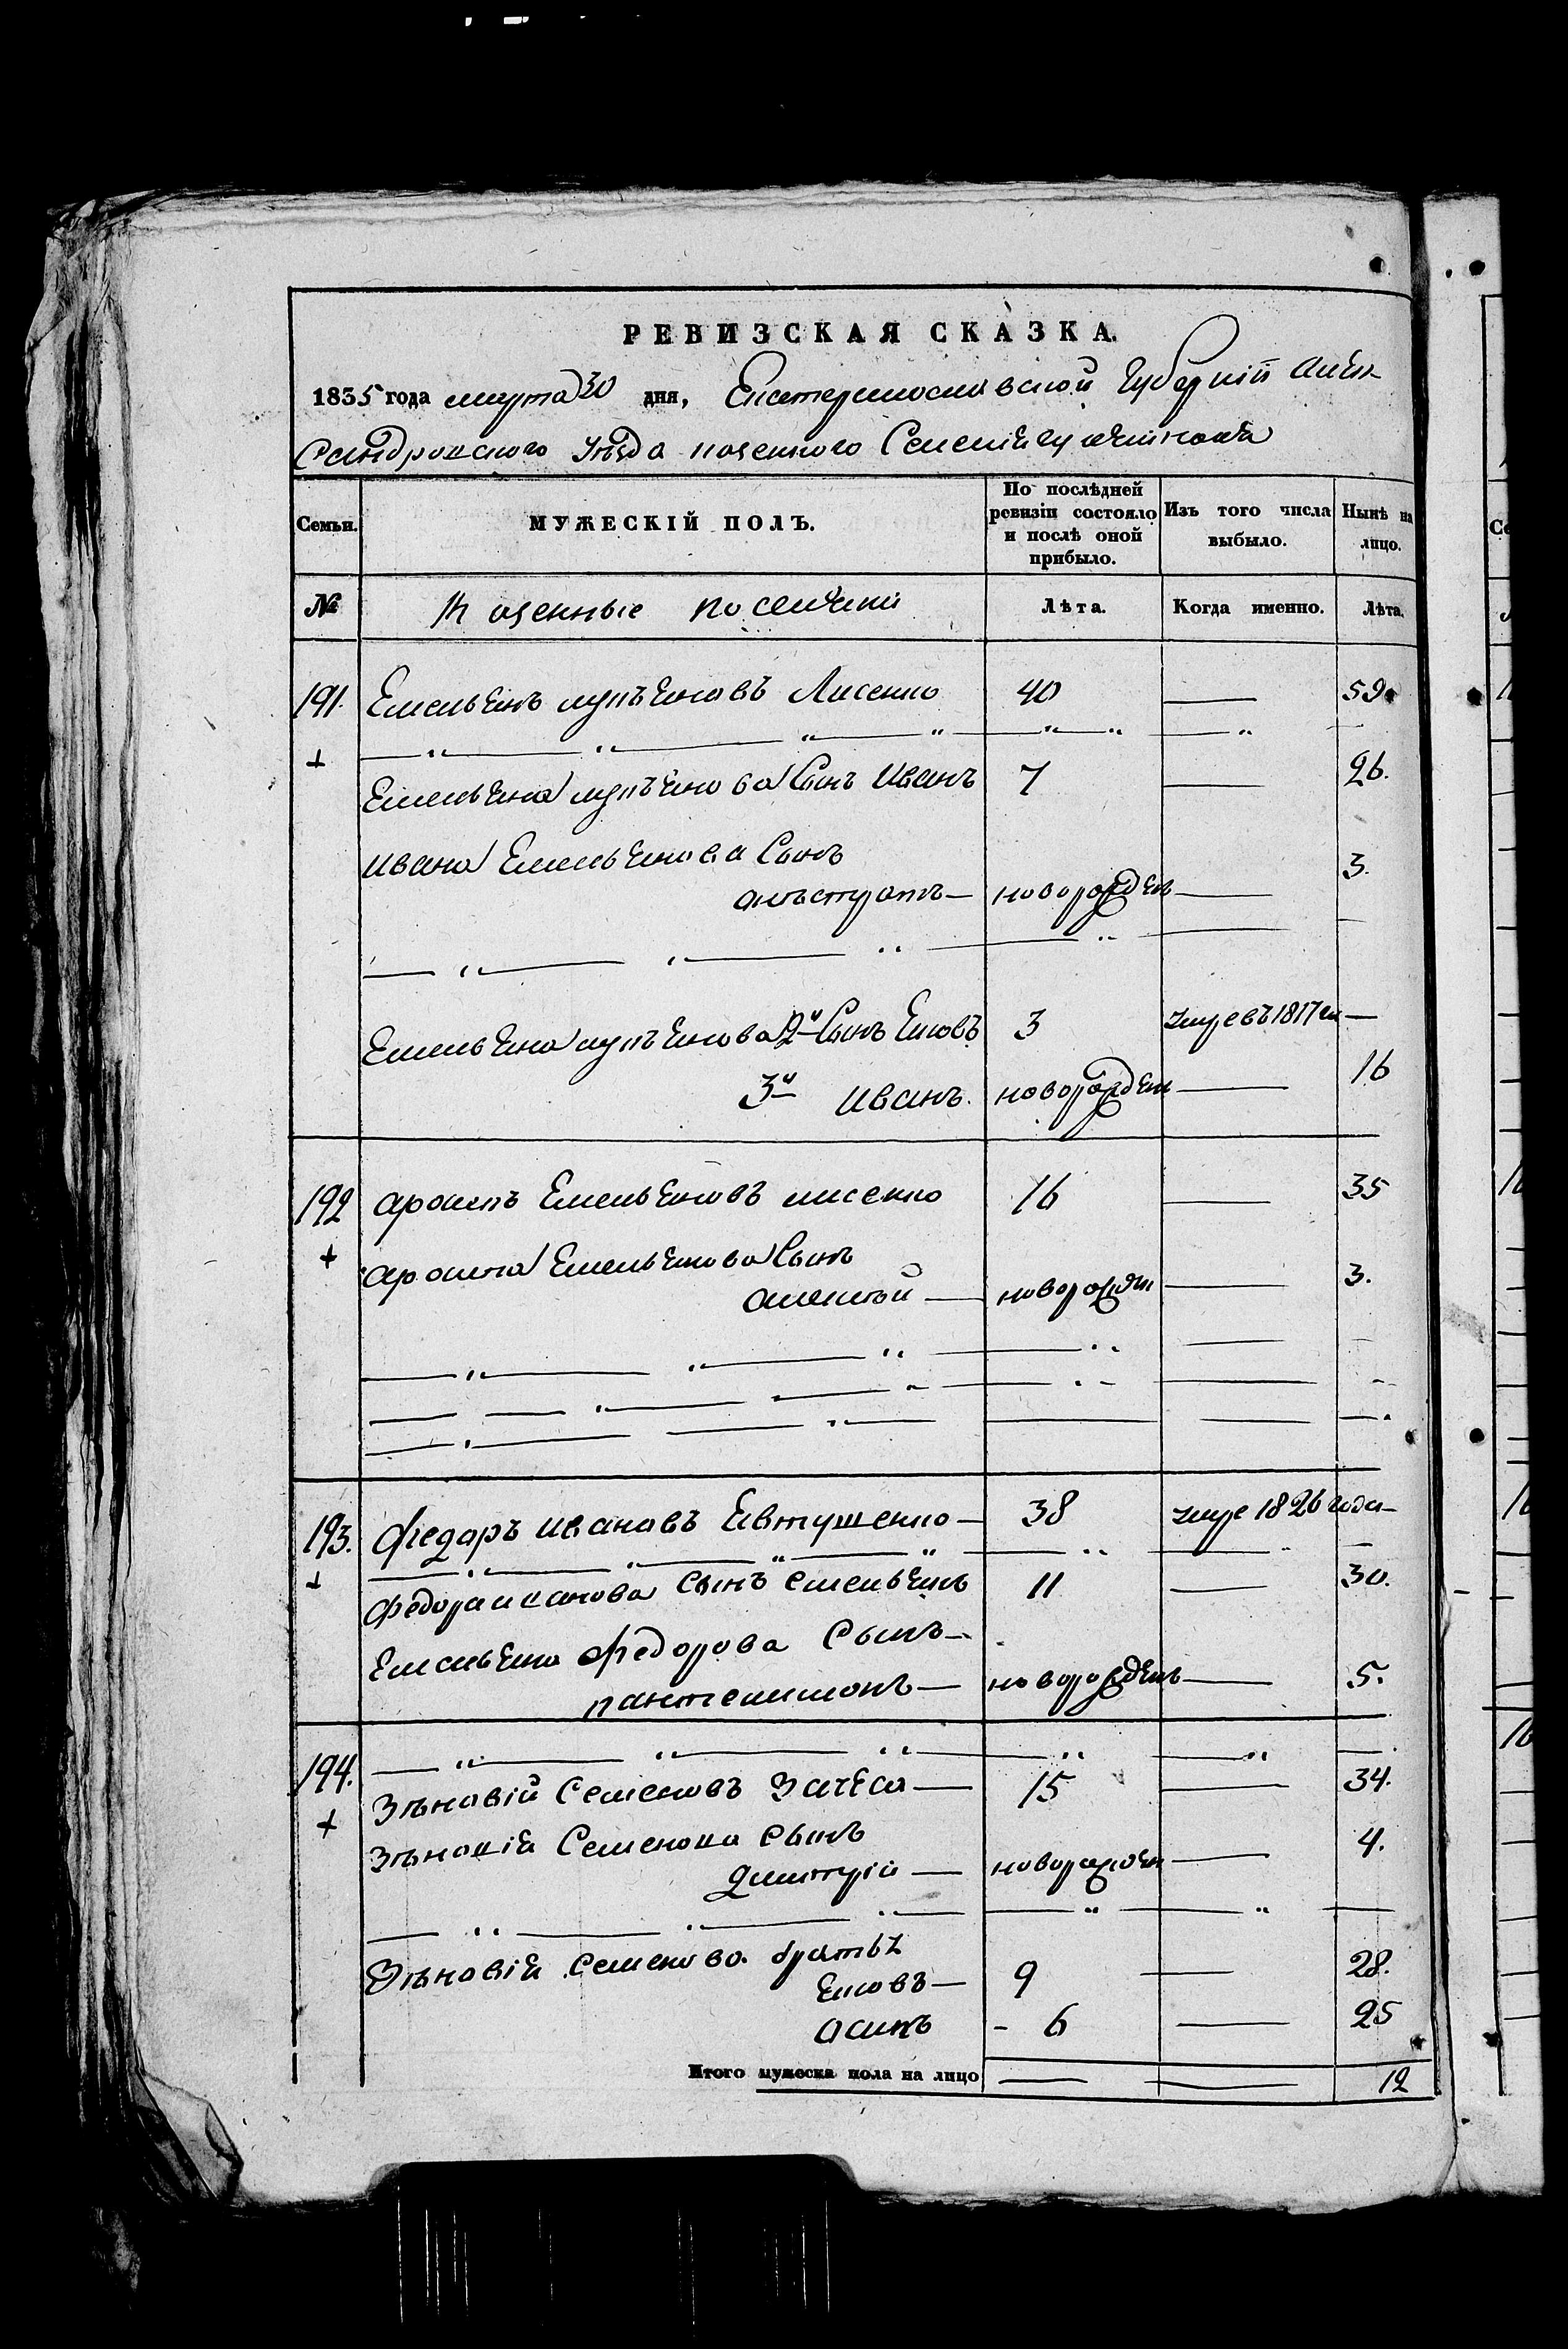 РЕВИЗСКАЯ СКАЗКА.
1835 года марта 30 дня, Екатеринославской Губерніи Алек
сандровского Уѣзда казенного Селенія
Семьи. МУЖЕСКІЙ ПОЛЪ. По послѣдней ревизіи состояло и послѣ оной прибыло. Изъ того числа выбыло. Нынѣ на лицо.
№ Казенные поселяни Лѣта. Когда именно. Лѣта.
191. Емельянъ Лисенко 40 — 59
Емельяна сынъ Иванъ 7 — 26.
Ивана Емельянова сынъ
— новорожденъ — 3.
Емельяна 2й сынъ Яковъ 3 умре въ 1817 —
3й Иванъ. новорожден — 16
192 Архипъ Емельяновъ лисенко 16 — 35
Архипа Емельянова сынъ
Алексѣй — новорожден — 3.
193. Федоръ Ивановъ Евтушенко — 38 умре 1826 года —
Федора иванова сынъ емельянъ 11 — 30.
Емельяна Федорова сынъ —
пантелимонъ — новорожденъ — 5.
194.
Зѣновій Семеновъ — 15 — 34.
Зѣновія Семенова сынъ
Дмитрій — новорожден — 4.
Зѣновія семенова братья
Яковъ — 9 — 28.
Осипъ - 6 — 25
Итого мужеска пола на лицо — — 12